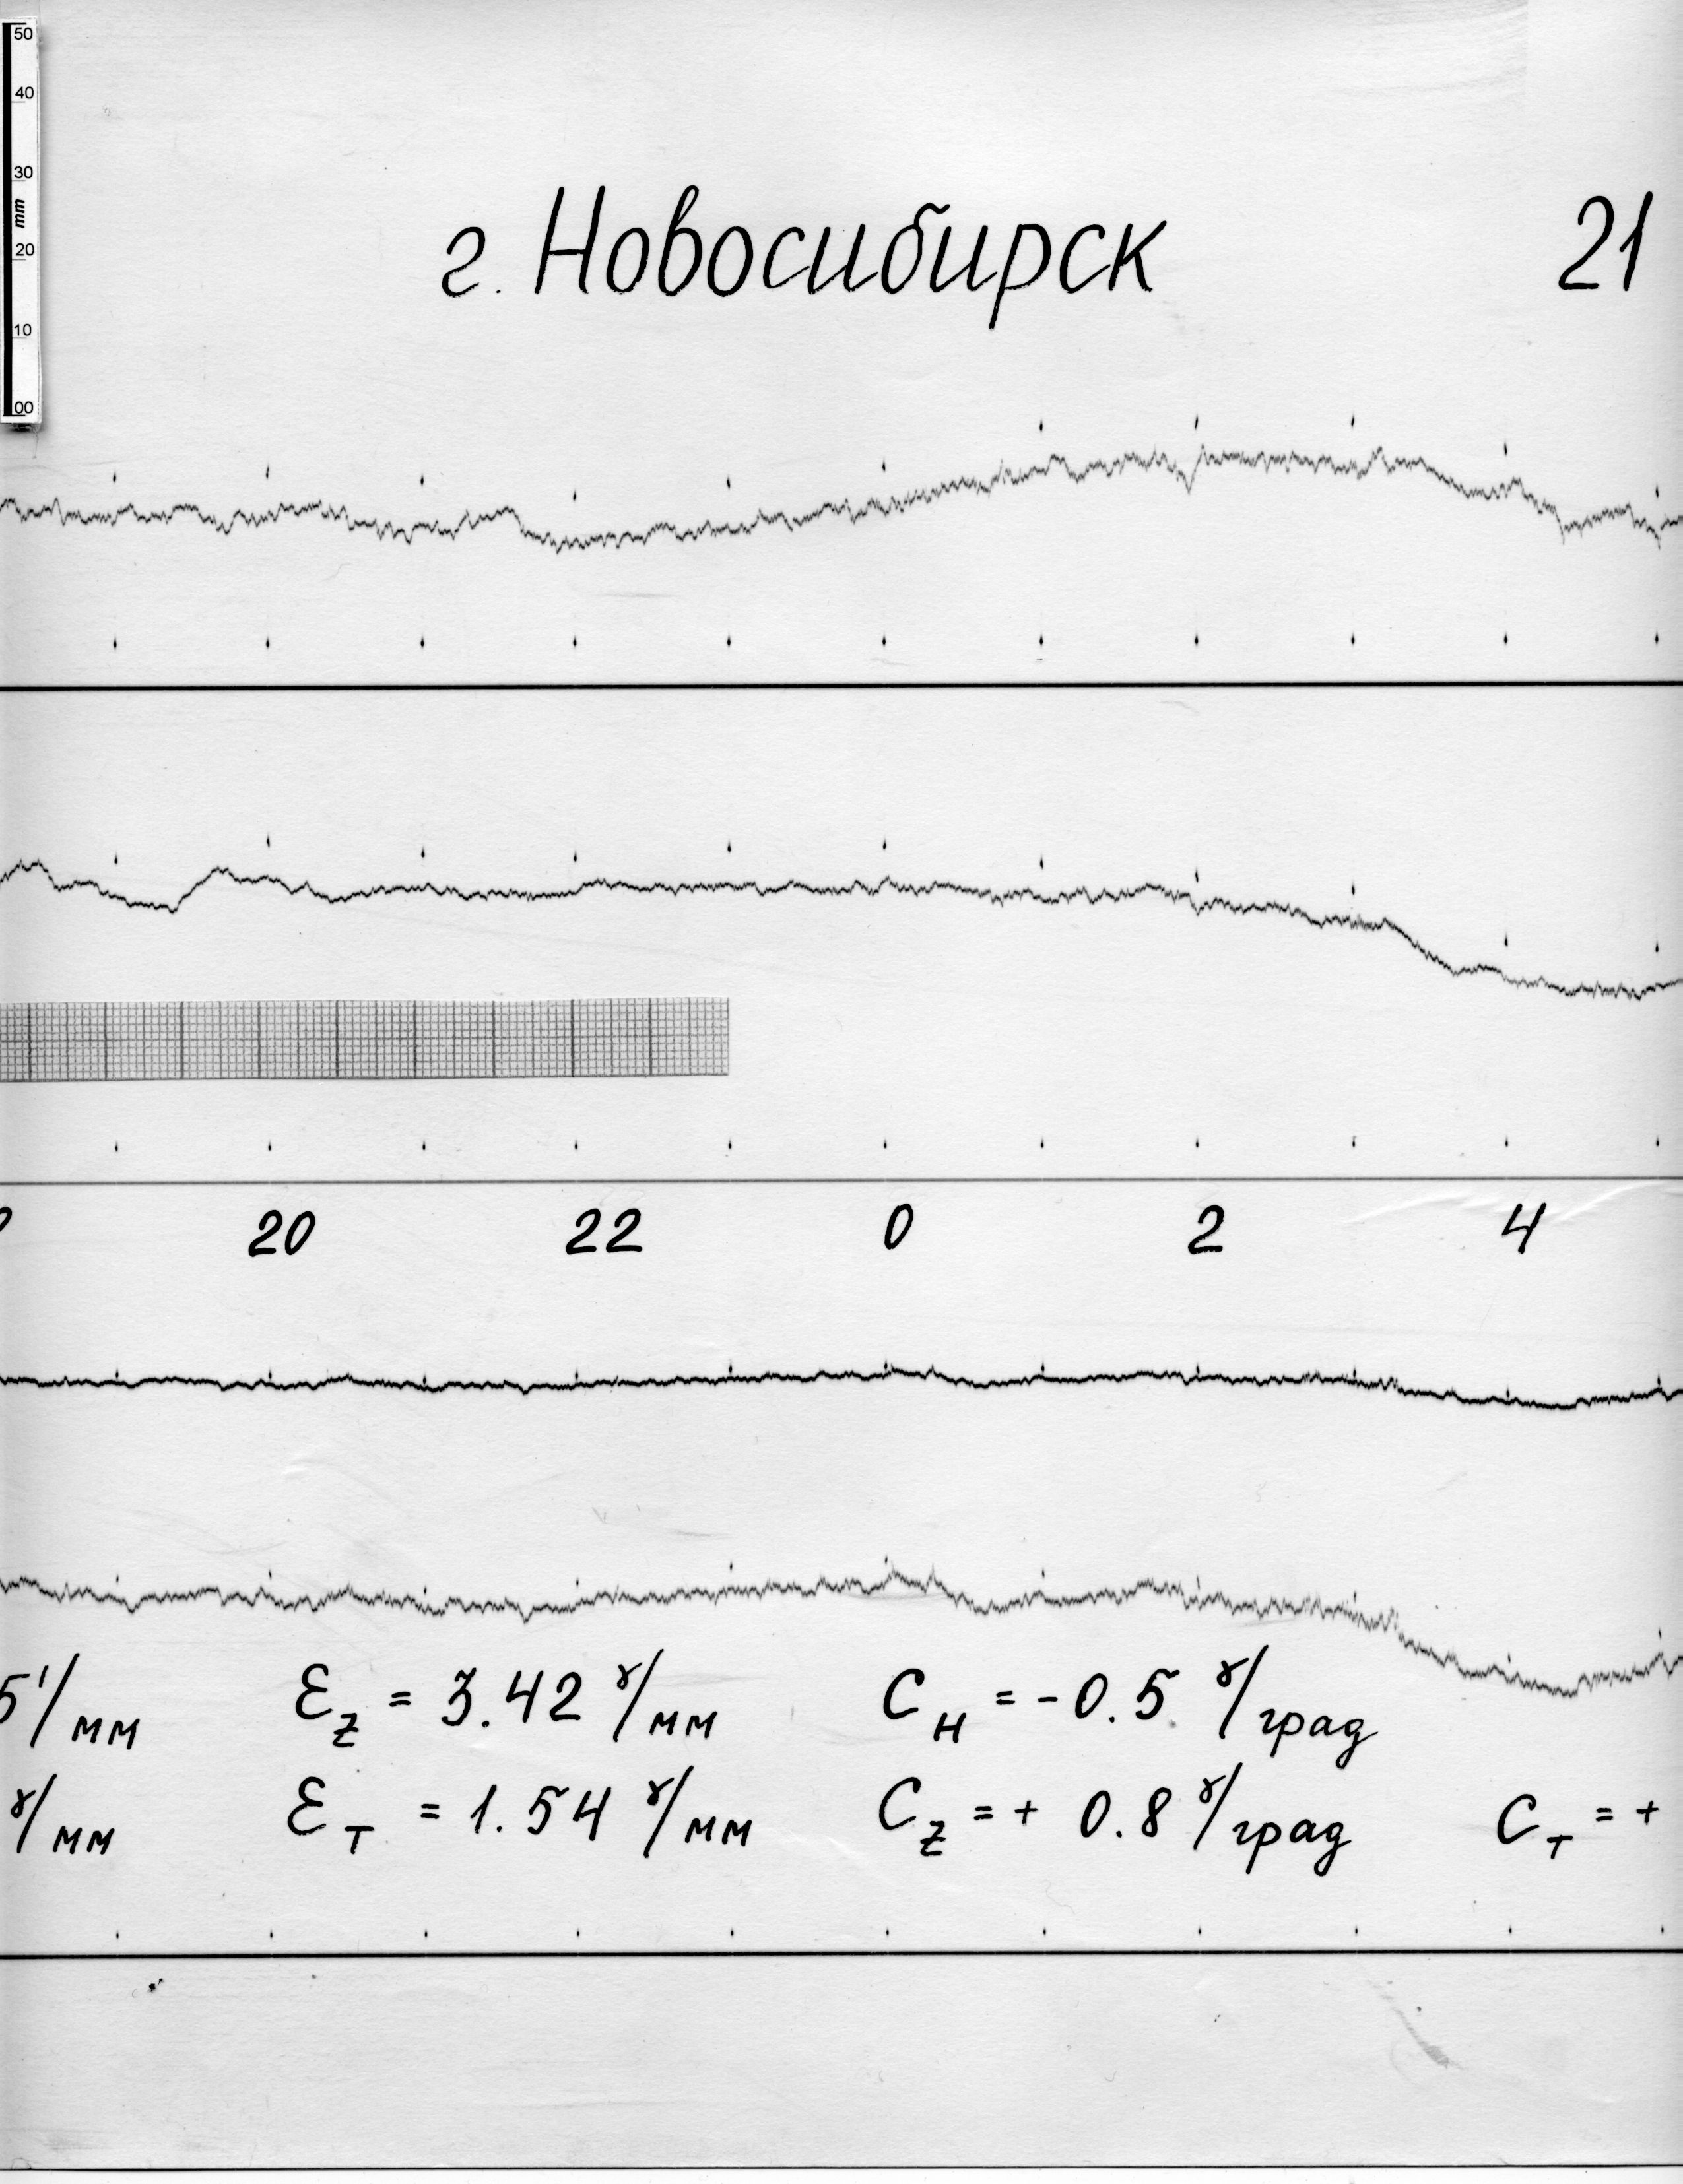 50
40
30
mm
20
10
00
г. Новосибирск 21
20 22 0 2 4
5'/мм Ɛz = 3.42 γ/мм Cн = -0.5 γ/град
γ/мм Ɛт = 1.54 γ/мм Cz = + 0.8 γ/град Cт = +